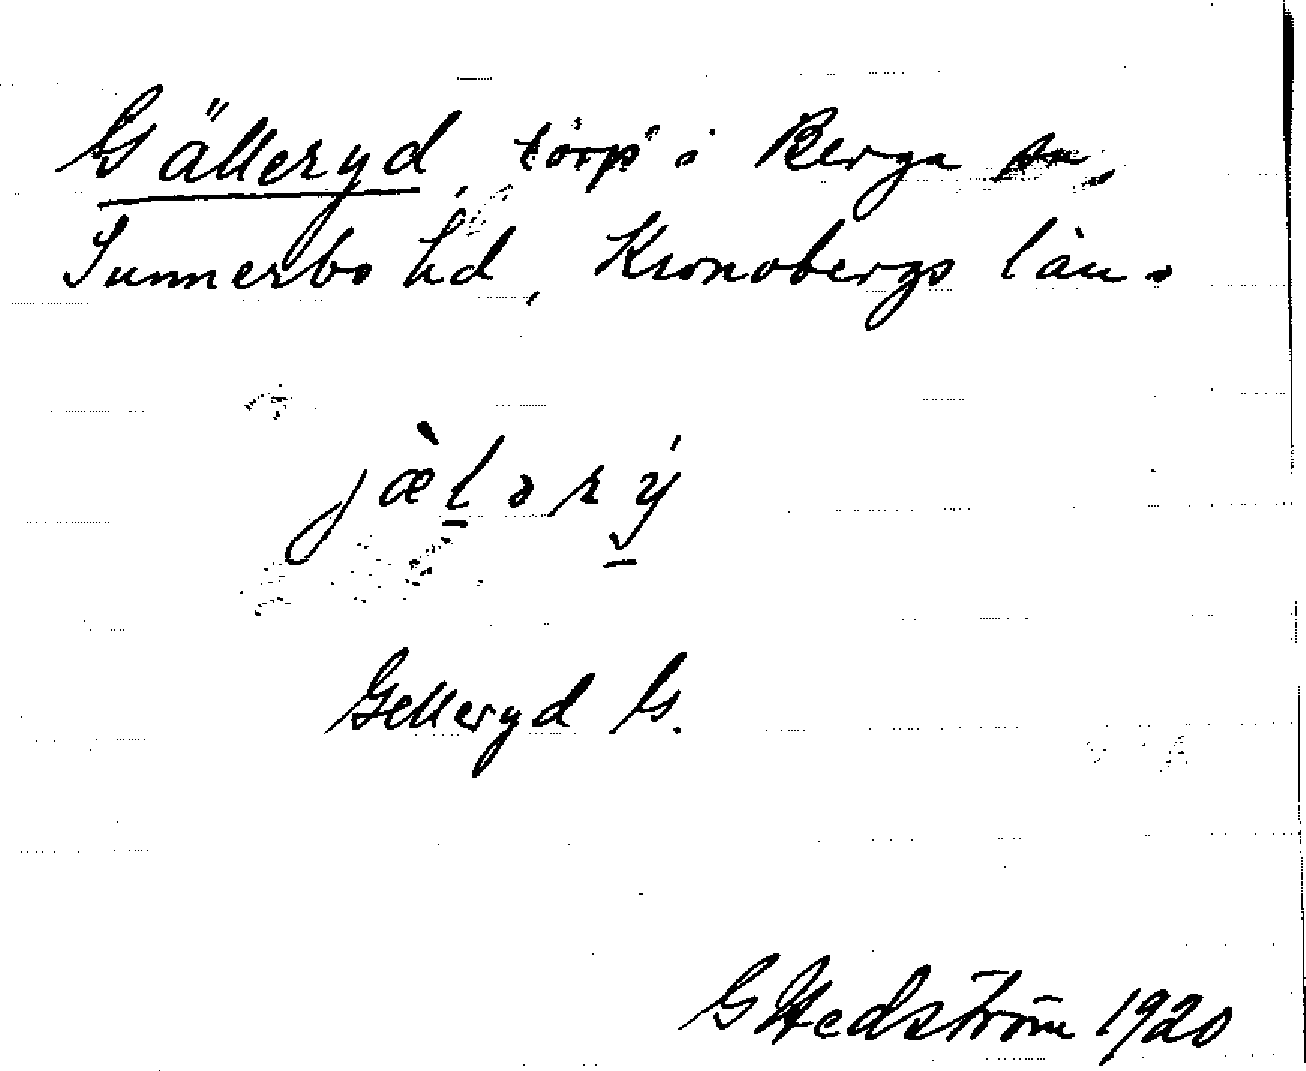 Gälleryd, torp i Berga sn,
Sunnerbo hd, Kronobergs län.
jæ̀lərẏ́
Gelleryd G.
G Hedström 1920